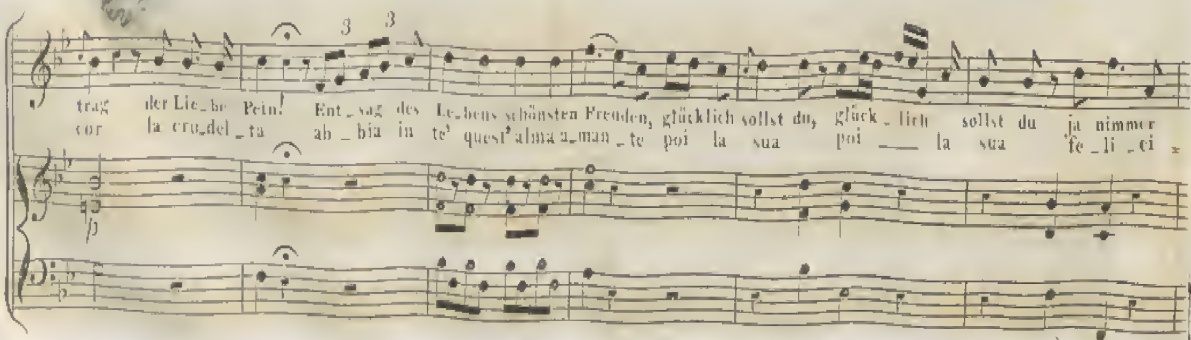 3 3
trag der Lie_be Pein! Ent_sag des Le_bens schönsten Freuden, glücklich sollst du, glück_lich sollst du ja nimmer
cor la cru_del_ta ab_bia in te quest' alma a_man_te poi la sua poi ___ la sua fe_li_ci_
p